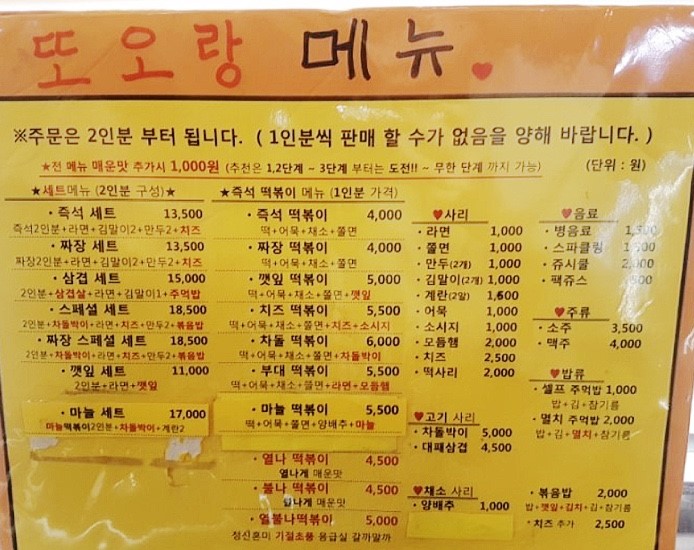 또오랑 메뉴
※주문은 2인분 부터 됩니다. ( 1인분씩 판매 할 수가 없음을 양해 바랍니다. )
★전 메뉴 매운맛 추가시 1,000원 (추천은 1,2단계 - 3단계 부터는 도전!! ~ 무한 단계 까지 가능) (단위 : 원)
★세트메뉴 (2인분 구성)★
· 즉석 세트 13,500
즉석2인분+라면+김말이2+만두2+치즈
· 짜장 세트 13,500
짜장2인분+라면+김말이2+만두2+치즈
· 삼겹 세트 15,000
2인분+삼겹살+라면+김말이1+주먹밥
· 스페셜 세트 18,500
2인분+차돌박이+라면+치즈+만두2+볶음밥
· 짜장 스페셜 세트 18,500
2인분+차돌박이+라면+치즈+만두2+볶음밥
· 깻잎 세트 11,000
2인분+라면+깻잎
· 마늘 세트 17,000
마늘떡볶이2인분+차돌박이+계란2
★즉석 떡볶이 메뉴 (1인분 가격)
· 즉석 떡볶이 4,000
떡+어묵+채소+쫄면
· 짜장 떡볶이 4,000
떡+어묵+채소+쫄면
· 깻잎 떡볶이 5,000
떡+어묵+채소+쫄면+깻잎
· 치즈 떡볶이 5,500
떡+어묵+채소+쫄면+치즈+소시지
· 차돌 떡볶이 6,000
떡+어묵+채소+쫄면+차돌박이
· 부대 떡볶이 5,500
떡+어묵+채소+쫄면+라면+모듬햄
· 마늘 떡볶이 5,500
떡+어묵+쫄면+양배추+마늘
· 열나 떡볶이 4,500
열나게 매운맛
· 불나 떡볶이 4,500
불나게 매운맛
· 열불나 떡볶이 5,000
정신혼미 기절초풍 응급실 갈까말까
♥사리
· 라면 1,000
· 쫄면 1,000
· 만두(2개) 1,000
· 김말이(2개) 1,000
· 계란(2알)
· 어묵 1,000
· 소시지 1,000
· 모듬햄 2,000
· 치즈 2,500
· 떡사리 2,000
♥고기 사리
· 차돌박이 5,000
· 대패삼겹 4,500
♥채소 사리
· 양배추 1,000
♥음료
· 병음료
· 스파클링
· 쥬시쿨 2,000
· 팩쥬스
♥주류
· 소주 3,500
· 맥주 4,000
♥밥류
· 셀프 주먹밥 1,000
밥+김+참기름
· 멸치 주먹밥 2,000
밥+김+멸치+참기름
· 볶음밥 2,000
밥+깻잎+김치+김+참기름
· 치즈 추가 2,500